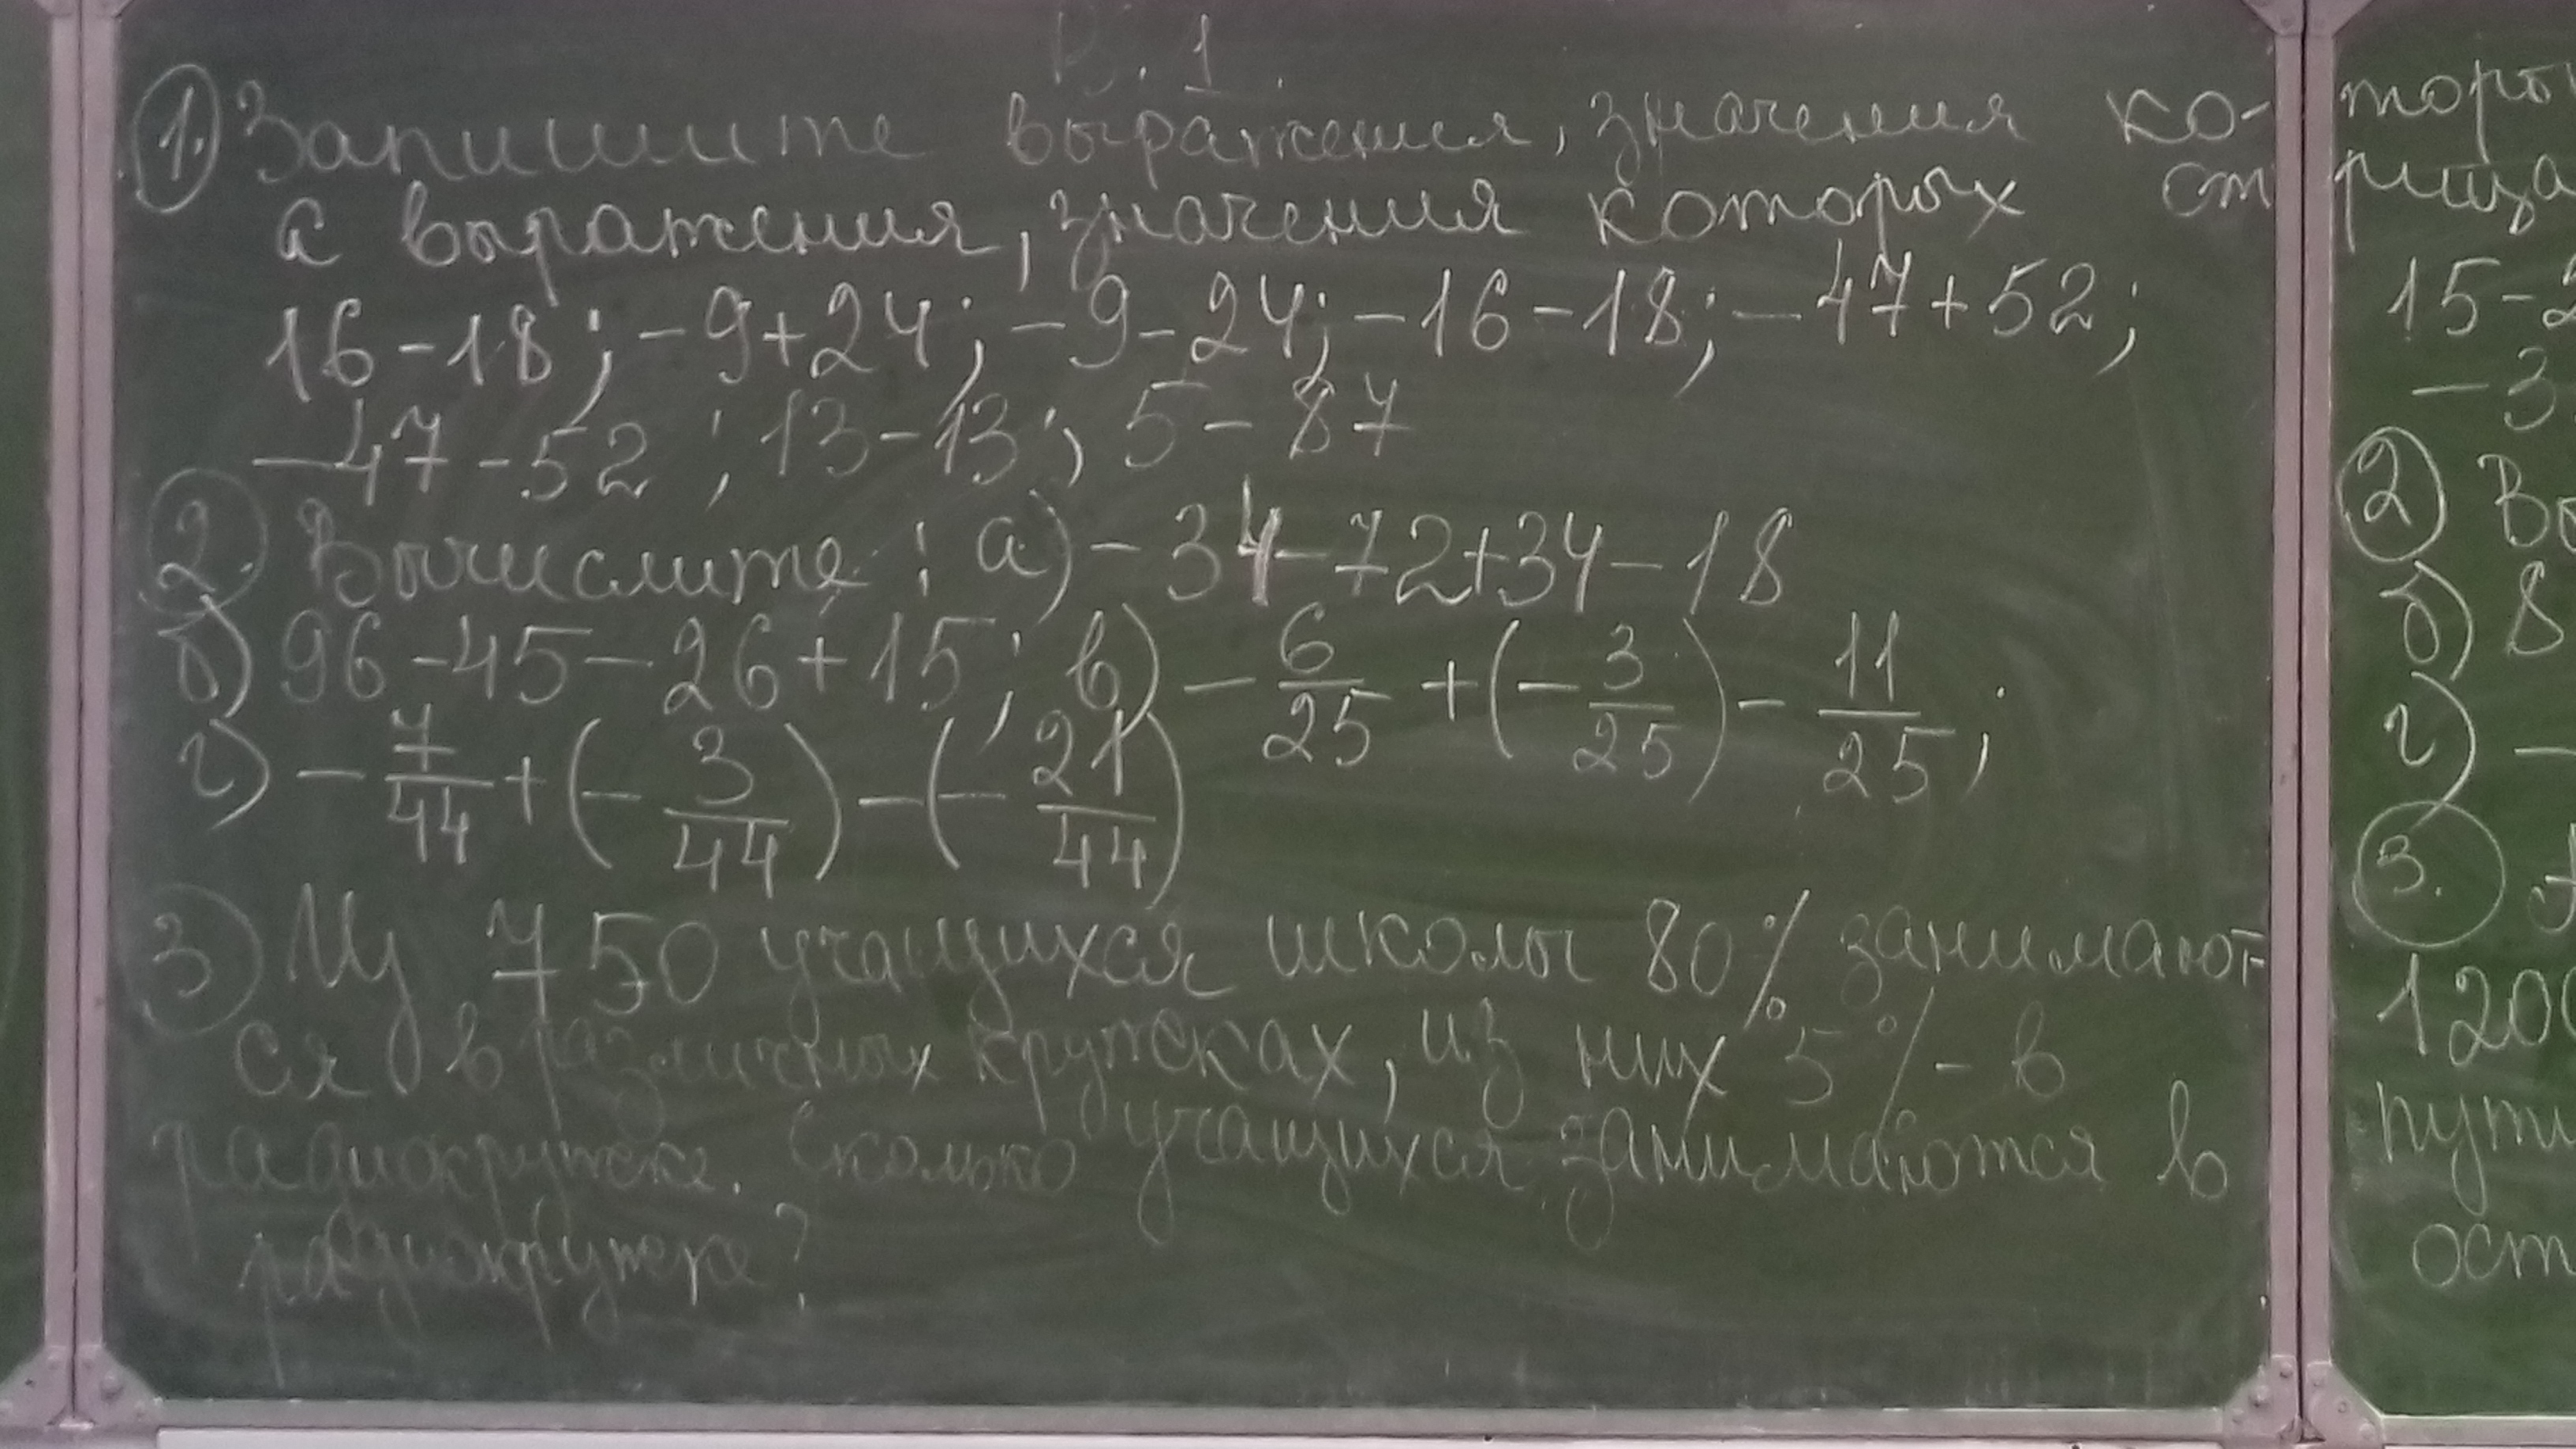 В. 1.
1. Запишите выражения, значения ко-
а выражения, значения которых от
16-18; -9+24; -9-24; -16-18; -47+52;
-47-52; 13-13; 5-87
2. Вычислите: а) -34-72+34-18
б) 96-45-26+15; в) -6/25+(-3/25)-11/25;
г) -7/44+(-3/44)-(-21/44)
3 Из 750 учащихся школы 80% занимают-
ся в различных кружках, из них 5% - в
радиокружке. Сколько учащихся занимаются в
радиокружке?
торы
рица
15-2
-3
2 Вы
б) 8
г) -
3.
120
пути
ост